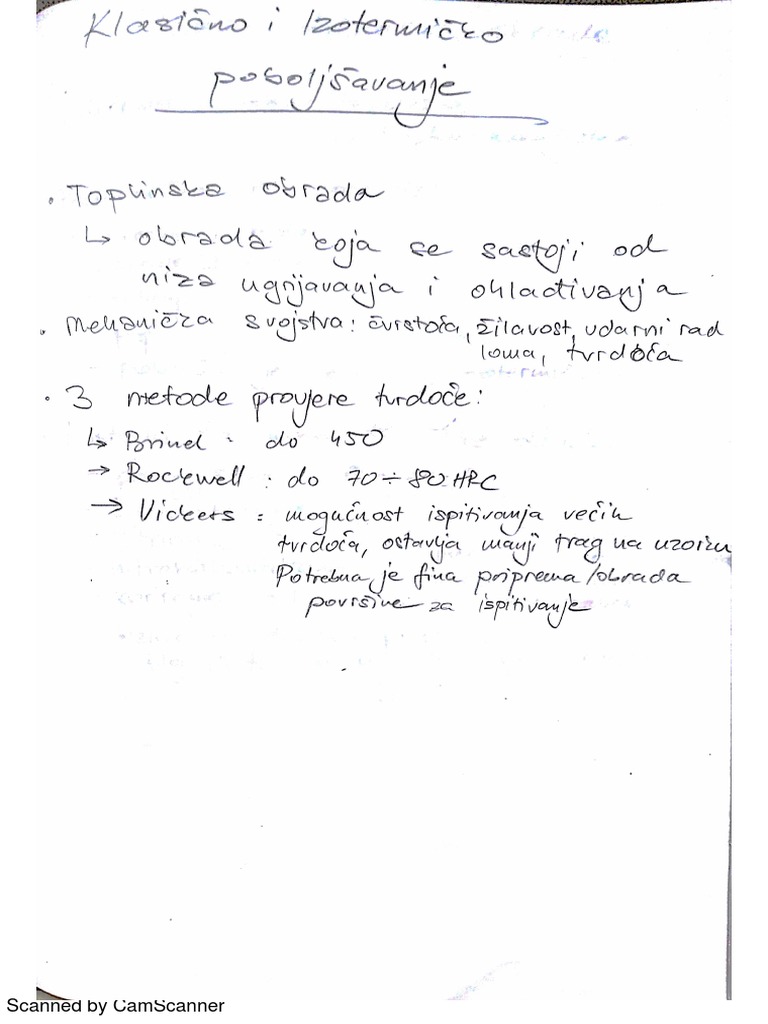 Klasično i Izotermičko
poboljšavanje
• Toplinska obrada
↳ obrada koja se sastoji od
niza ugrijavanja i ohlađivanja
• Mehanička svojstva: čvrstoća, žilavost, udarni rad
loma, tvrdoća
• 3 metode provjere tvrdoće:
↳ Brinel : do 450
→ Rockwell : do 70 ÷ 80 HRC
→ Vickers : mogućnost ispitivanja većih
tvrdoća, ostavlja manji trag na uzorku
Potrebna je fina priprema/obrada
površine za ispitivanje
Scanned by CamScanner